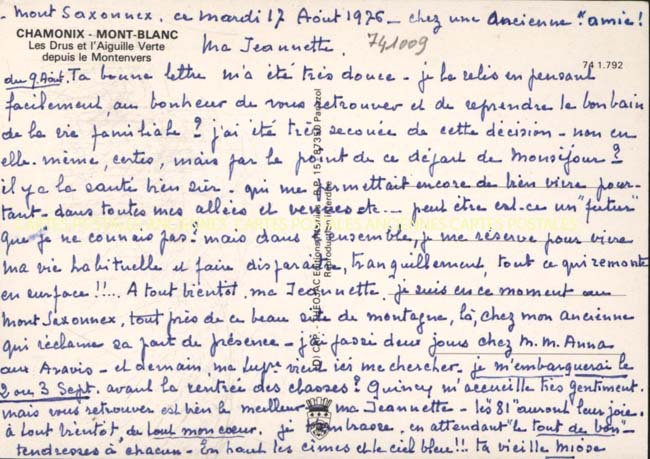 Mont Saxonnex. ce mardi 17 Août 1976 - chez une Ancienne "amie!
CHAMONIX - MONT-BLANC
Les Drus et l'Aiguille Verte
depuis le Montenvers
Ma Jeannette.
741009
74 1.792
du 9 Août. Ta bonne lettre m'a été très douce - je la relis en pensant
facilement, au bonheur de vous retrouver et de reprendre le bon bain
de la vie familiale? j'ai été très secouée de cette décision - non en
elle-même, certes, mais par le point de ce départ de Monséjour?
il y a la santé bien sûr - qui me permettait encore de bien vivre pour-
tant - dans toutes mes allées et venues etc... peut être est-ce un "futur"
que je ne connais pas? mais dans l'ensemble, je me réserve pour vivre
ma vie habituelle et faire disparaître, tranquillement, tout ce qui remonte
en surface!!... A tout bientôt, ma Jeannette. je suis en ce moment au
Mont Saxonnex, tout près de ce beau site de montagne, là, chez mon ancienne
qui réclame sa part de présence - j'ai passé deux jours chez M.M. Anna
aux Aravis - et demain, ma Supre vient ici me chercher. je m'embarquerai le
2 ou 3 Sept. avant la rentrée des classes? Quincy m'accueille très gentiment.
mais vous retrouver est bien le meilleur - ma Jeannette - les "81" auront leur joie.
à tout bientôt de tout mon coeur. je t'embrasse. en attendant "le tout de bon" -
tendresses à chacun - En haut les cimes et le ciel bleu!!! ta vieille Miope
Reproduction interdite